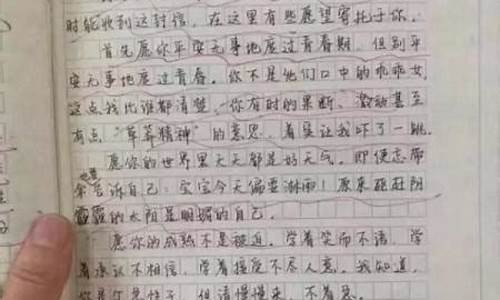 时能收到这封信，在这里有些愿望寄托于你，
首先愿你平安无事地度过青春期，但别平
安无事地度过青春。你不是他们口中的乖乖女，
这点我比谁都清楚，你有时的果断、激动甚至
有点“草莽精神”的意思，着实让我吓了一跳。
愿你的世界里天天都是好天气，即使忘带
伞也要告诉自己：宝宝今天偏要淋雨！原来驱赶阴
霾的太阳是明媚的自己。
愿你的成熟不是被迫，学着笑而不语，学
着承认不相信，学着接受不尽人意。我知道，
你是个急性子，但请慢慢来，不着急。